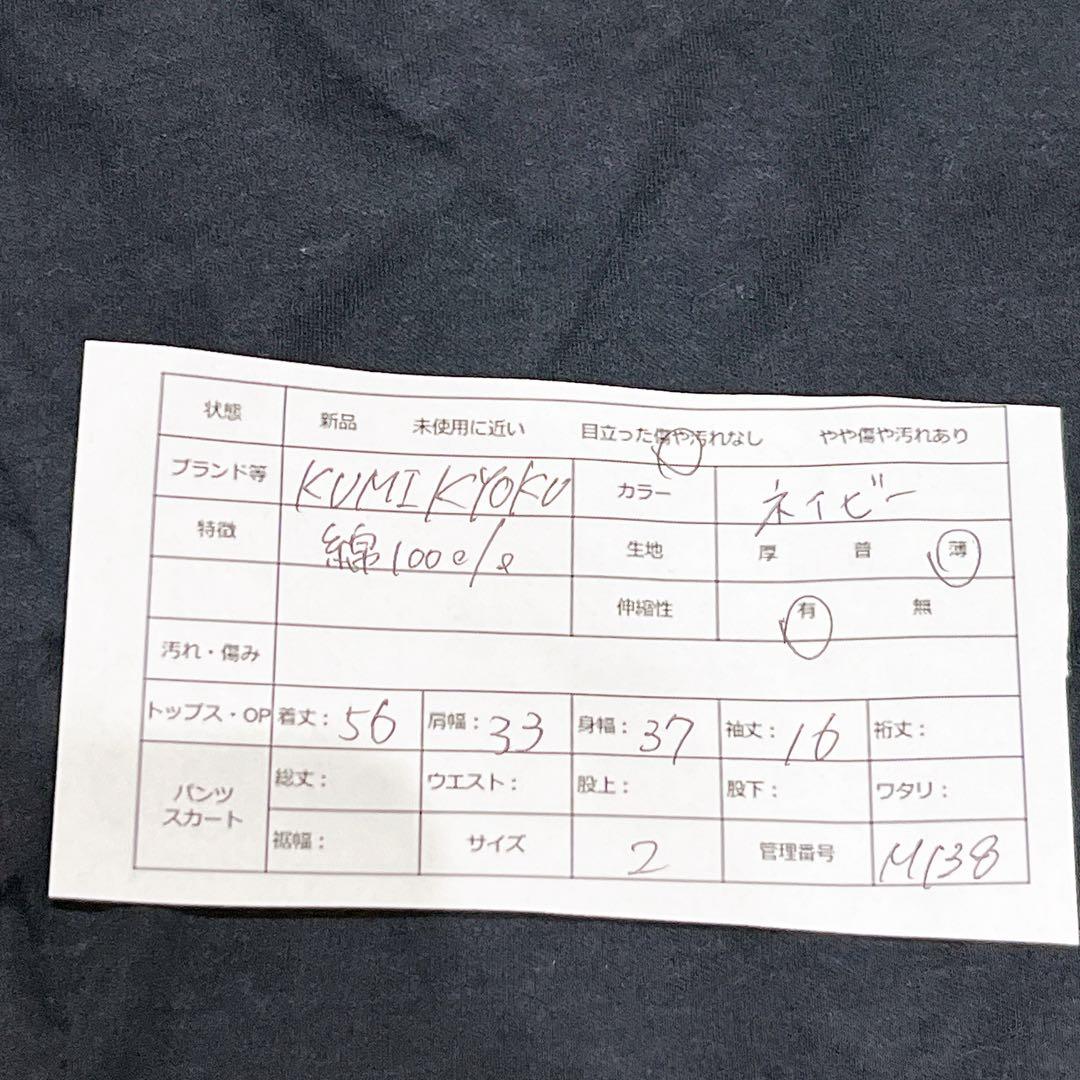 状態 新品 未使用に近い 目立った傷や汚れなし やや傷や汚れあり
ブランド等 KUMIKYOKU カラー ネイビー
特徴 綿100% 生地 厚 普 薄
伸縮性 有 無
汚れ・傷み
トップス・OP 着丈：56 肩幅：33 身幅：37 袖丈：16 裄丈：
パンツ スカート 総丈： ウエスト： 股上： 股下： ワタリ：
裾幅： サイズ 2 管理番号 M138